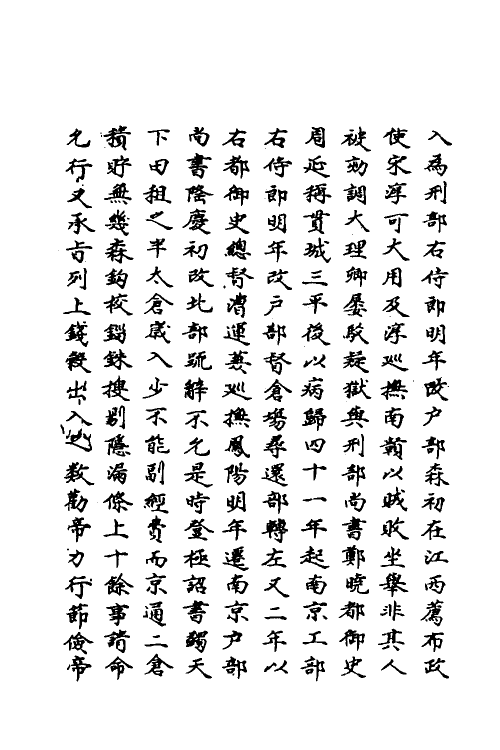 入為刑部右侍郎明年改户部森初在江西薦布政
使宋淳可大用及淳巡撫南贛以賊敗坐舉非其人
被劾調大理卿屡駁疑獄與刑部尚書鄭曉都御史
周延稱貫城三平後以病歸四十一年起南京工部
右侍郎明年改户部督倉場尋還部轉左又二年以
右都御史總督漕運兼巡撫鳳陽明年遷南京户部
尚書隆慶初改北部疏辭不允是時登極詔書蠲天
下田租之半太倉歲入少不能副經費而京通二倉
積貯無幾森鈎校錙銖搜剔隱漏條上十餘事請命
允行又承旨列上錢穀出入之數勸帝力行節儉帝